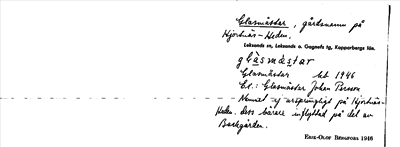 Glasmästar, gårdsnamn på
Hjortnäs-Heden.
Leksands sn, Leksands o. Gagnefs tg, Kopparbergs län.
glàsmástar
Glasmästar bt 1946
Bl.: Glasmäster Johan Persson
Namnet ej ursprungligt på Hjortnäs-
Heden. Dess bärare inflyttad på det av
Backgården.
Erik-Olof Bergfors 1946